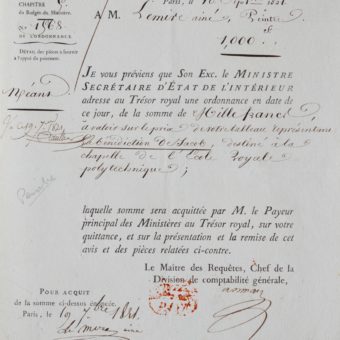 CHAPITRE
du Budget du Ministère.
N.° 1868
DE L'ORDONNANCE.
DÉTAIL des pièces à fournir
à l'appui du paiement.
Néant
Paris, le 1821
A M. Lemire aîné, Peintre
1,000 f
JE vous préviens que Son Exc. le MINISTRE
SECRÉTAIRE D'ÉTAT DE L'INTÉRIEUR
adresse au Trésor royal une ordonnance en date de
ce jour, de la somme de Mille francs
à valoir sur le prix de votre tableau représentant
la bénédiction de Jacob, destiné à la
chapelle de l'Ecole royale
polytechnique ;
Peintre
laquelle somme sera acquittée par M. le Payeur
principal des Ministères au Trésor royal, sur votre
quittance, et sur la présentation et la remise de cet
avis et des pièces relatées ci-contre.
Le Maître des Requêtes, Chef de la
Division de comptabilité générale,
POUR ACQUIT
de la somme ci-dessus énoncée.
Paris, le 19 7bre 1821.
Lemire aîné